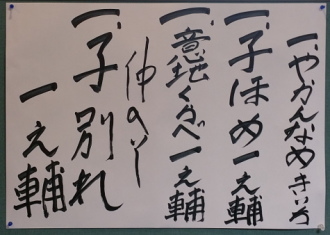 一、やかんなめ きいち
一、子ほめ 一之輔
一、意地くらべ 一之輔
仲入り
一、子別れ
一之輔